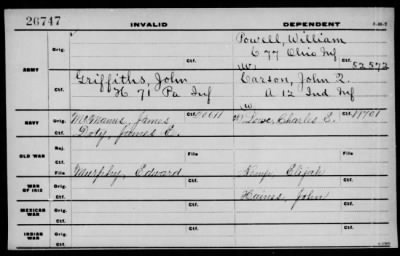 26747 INVALID DEPENDENT
Powell, William
Orig. C 77 Ohio Inf
ARMY Ctf. (W) Ctf. 52572
Griffiths, John Carson, John
Orig. H 71 Pa Inf A 12 Ind Inf
Ctf. (W) Ctf.
NAVY Orig. McManus, James Ctf. Lowe, Charles E. Ctf.
Ctf. Doty, James E.
OLD WAR Rej.
Ctf. File
WAR OF 1812 File Murphy, Edward Kemp, Elijah
Orig. Ctf. Haines, John Ctf.
MEXICAN WAR Orig.
Ctf.
INDIAN WAR Orig.
Ctf.